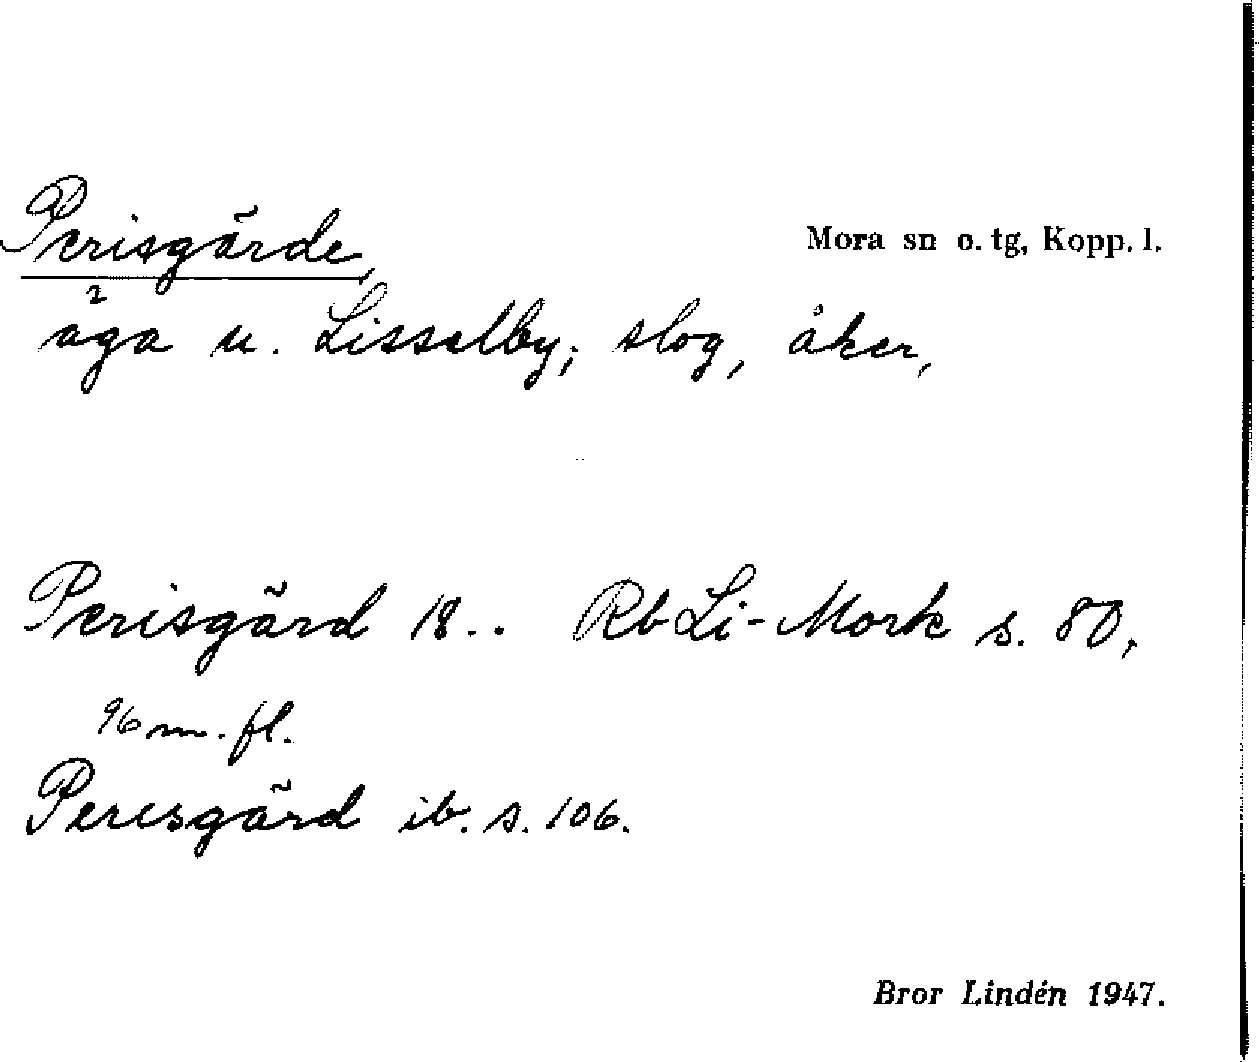 Perisgärde,
Mora sn o. tg, Kopp. l.
äga u. Lisselby; slog, åker,
Perisgärd 18.. Rb Li-Mork s. 80,
96 m. fl.
Peresgärd ib. s. 106.
Bror Lindén 1947.